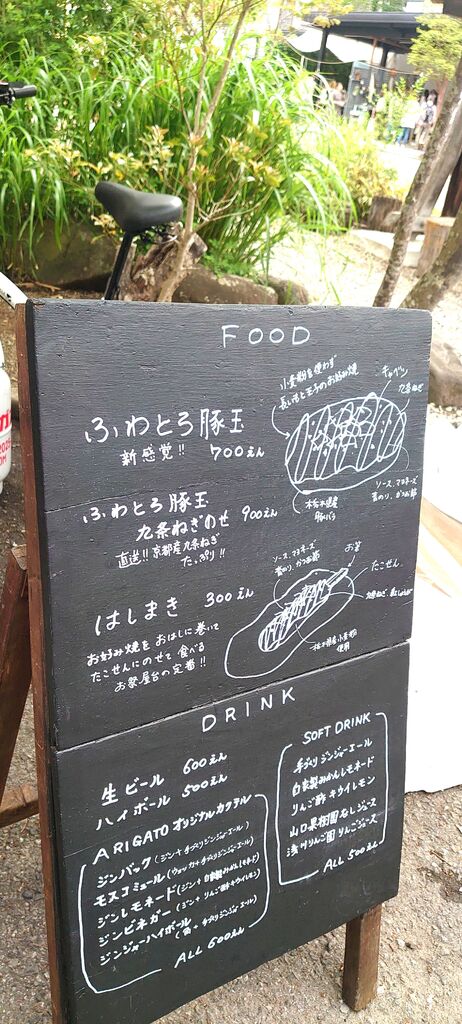 FOOD
ふわとろ豚玉
新感覚!! 700えん
小麦粉を使わず
長いもと玉子のお好み焼
キャベツ
九条ねぎ
ソース、マヨネーズ
青のり、かつお節
栃木県産
豚バラ
ふわとろ豚玉
九条ねぎのせ 900えん
直送!!京都産九条ねぎ
たっぷり!!
はしまき 300えん
お好み焼を おはしに巻いて
たこせんにのせて食べる
お祭屋台の定番!!
ソース、マヨネーズ
青のり、かつお節
お箸
たこせん
栃木県産小麦粉
使用
DRINK
生ビール 600えん
ハイボール 500えん
ARIGATO オリジナルカクテル
ジンバック(ジン+手づくりジンジャーエール)
モスコミュール(ウォッカ+手づくりジンジャーエール)
ジンレモネード(ジン+自家製みかんレモネード)
ジンビネガー(ジン+りんご酢キウイレモン)
ジンジャーハイボール
(角+手づくりジンジャーエール)
ALL 600えん
SOFT DRINK
手づくりジンジャーエール
自家製みかんレモネード
りんご酢キウイレモン
山口果樹園なしジュース
浅川りんご園りんごジュース
ALL 500えん